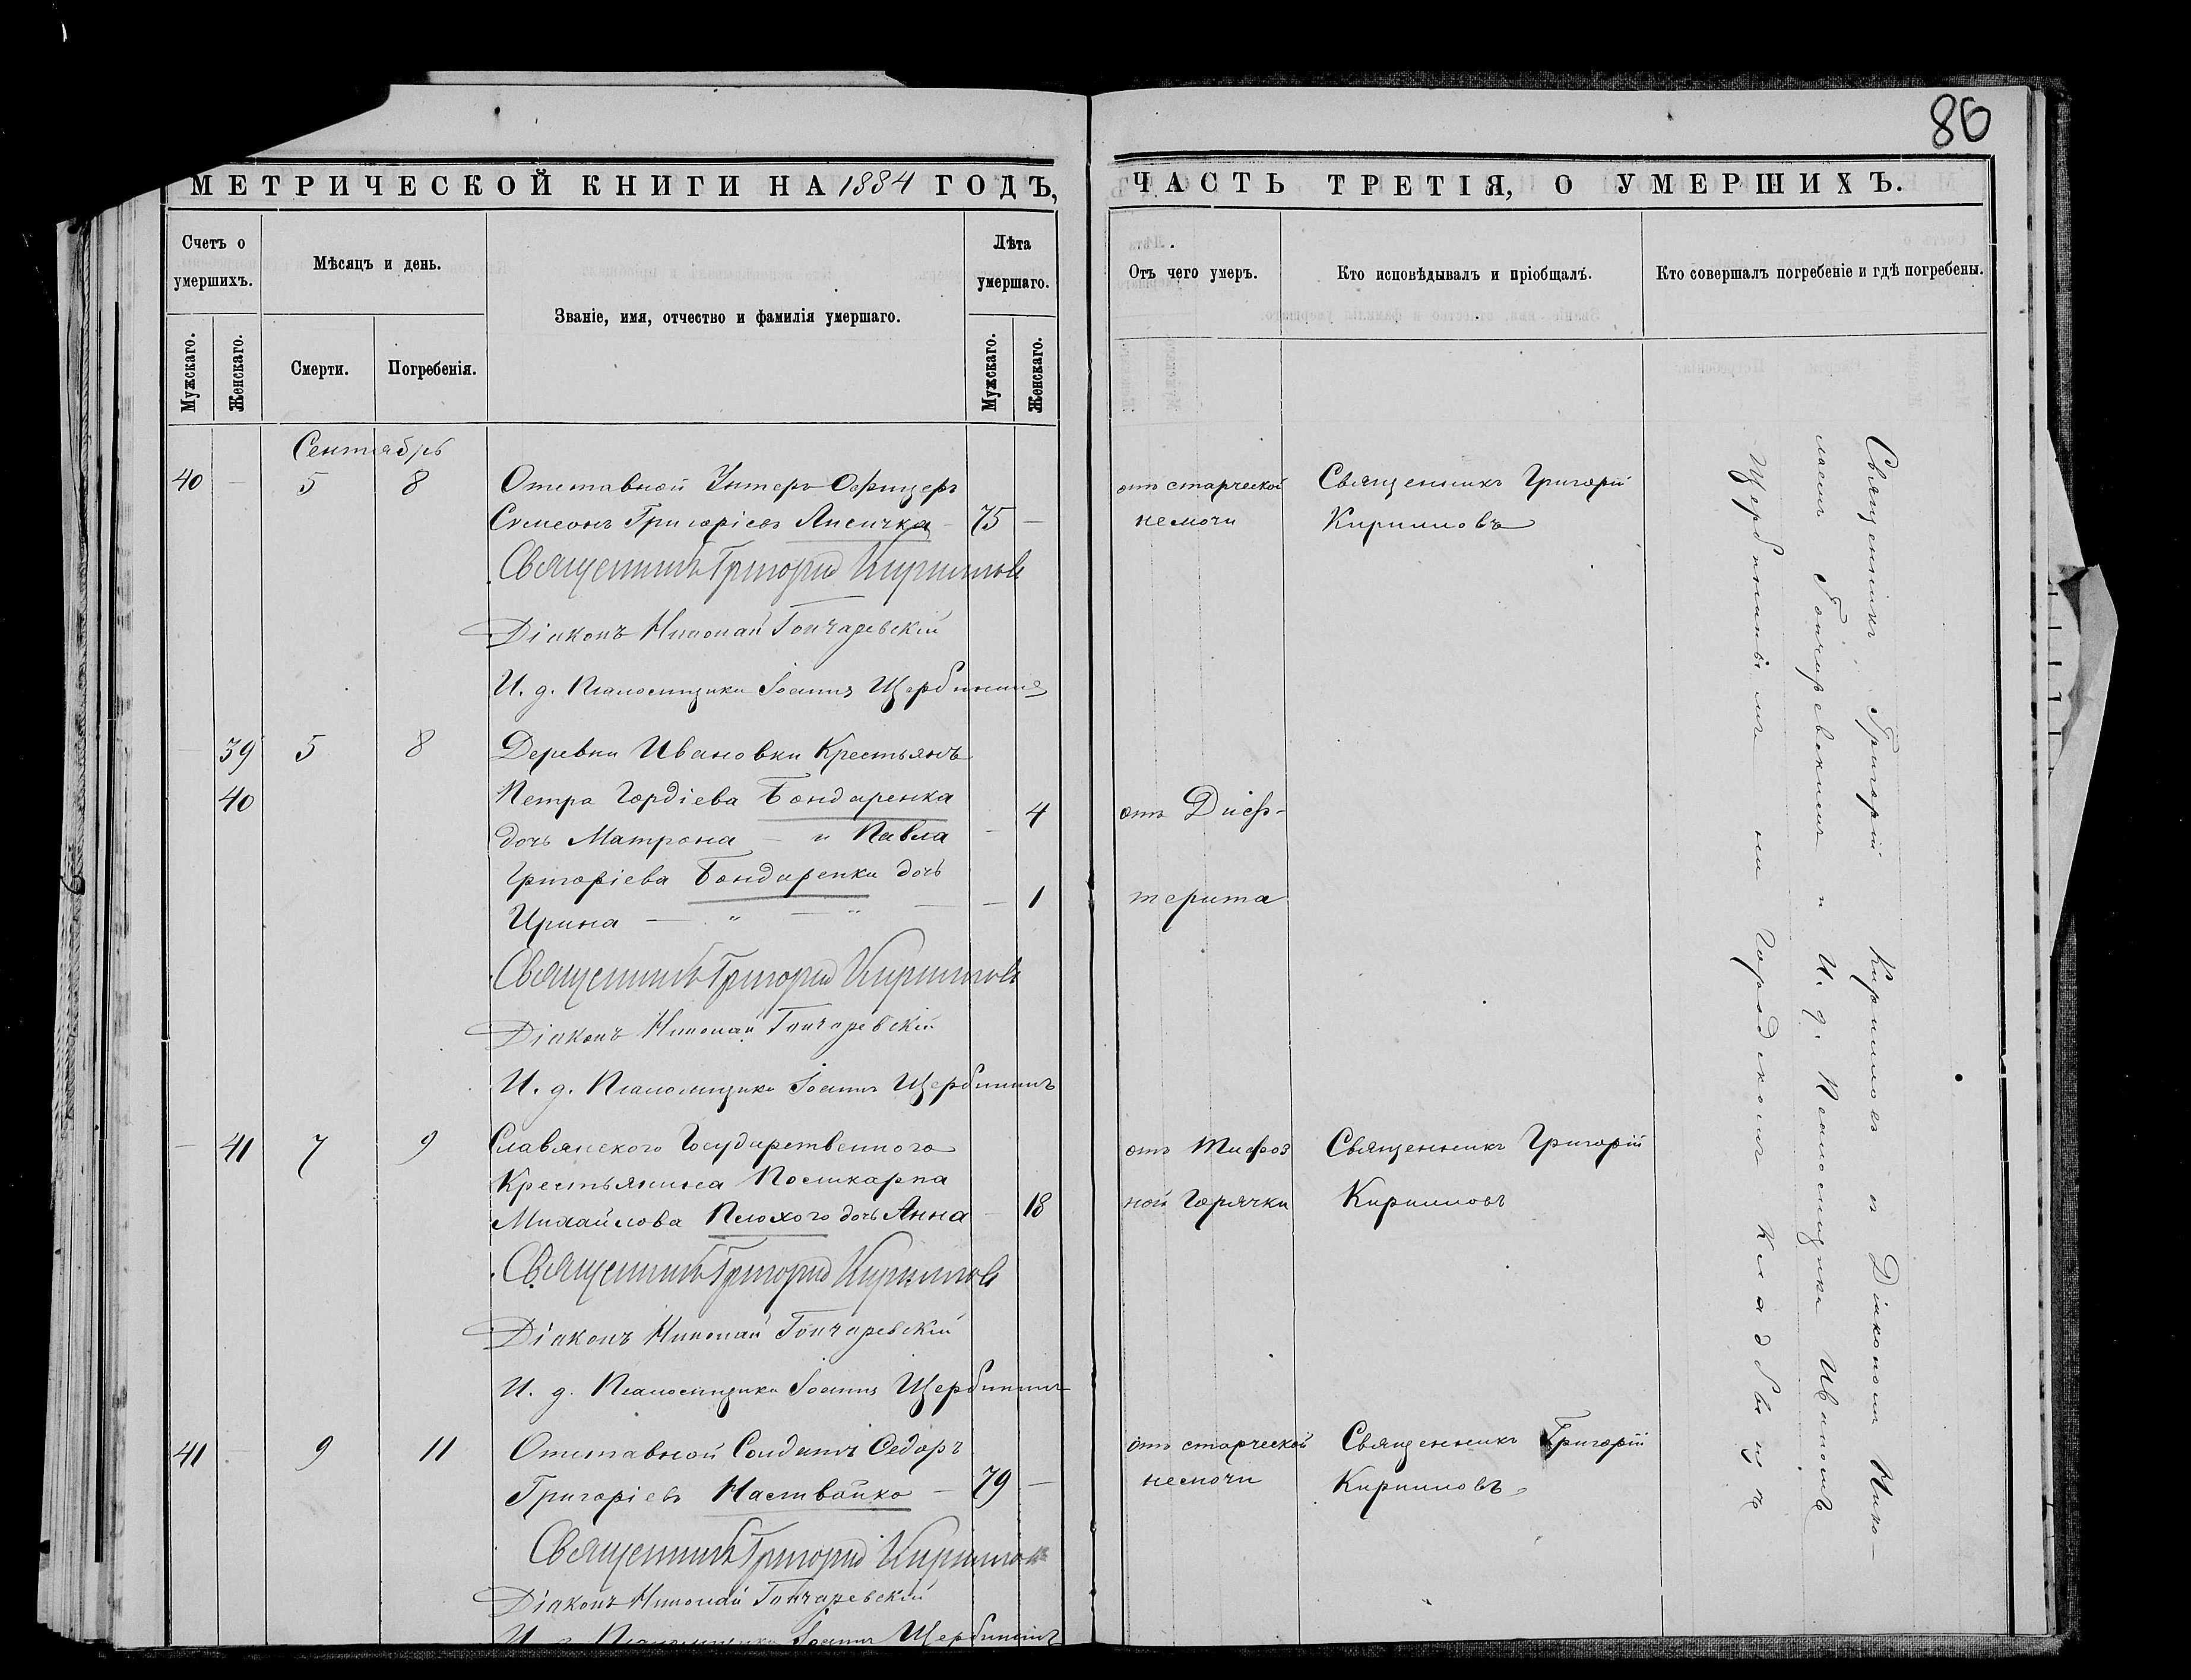 86
МЕТРИЧЕСКОЙ КНИГИ НА 1884 ГОДЪ,
ЧАСТЬ ТРЕТІЯ, О УМЕРШИХЪ.
Счетъ о умершихъ.
Мѣсяцъ и день.
Званіе, имя, отчество и фамилія умершаго.
Лѣта умершаго.
Отъ чего умеръ.
Кто исповѣдывалъ и пріобщалъ.
Кто совершалъ погребеніе и гдѣ погребены.
Мужскаго.
Женскаго.
Смерти.
Погребенія.
Мужскаго.
Женскаго.
Сентябрь
40 — 5 8 Отставной Унтеръ-Офицеръ
Симеонъ Григоріевъ Лисичка — 75 —
отъ старческой
немочи
Священникъ Григорій
Кирилловъ
Священникъ Григорій Кирилловъ
Діаконъ Николай Гончаревскій
И. д. Псаломщика Іоаннъ Щербининъ
— 39 5 8 Деревни Ивановки Крестьянъ
40 Петра Гордіева Бондаренка
дочь Матрона — и Павла — 4
Григоріева Бондаренка дочь
Ирина — „ — „ — — 1
отъ Диф-
терита
Священникъ Григорій Кирилловъ
Діаконъ Николай Гончаревскій
И. д. Псаломщика Іоаннъ Щербининъ
— 41 7 9 Славянского Государственного
Крестьянина Поликарпа
Михайлова Плохого дочь Анна — 18
отъ Тифоз
ной Горячки
Священникъ Григорій
Кирилловъ
Священникъ Григорій Кирилловъ
Діаконъ Николай Гончаревскій
И. д. Псаломщика Іоаннъ Щербининъ
41 — 9 11 Отставной Солдатъ Ѳедоръ
Григоріевъ Наливайко — 79 —
отъ старческой
немочи
Священникъ Григорій
Кирилловъ
Священникъ Григорій Кирилловъ
Діаконъ Николай Гончаревскій
И. д. Псаломщика Іоаннъ Щербининъ
Священникъ Григорій Кирилловъ съ Діакономъ Нико-
лаемъ Гончаревскимъ и И. д. Псаломщика Иваномъ
Щербининымъ на Городскомъ Кладбищѣ